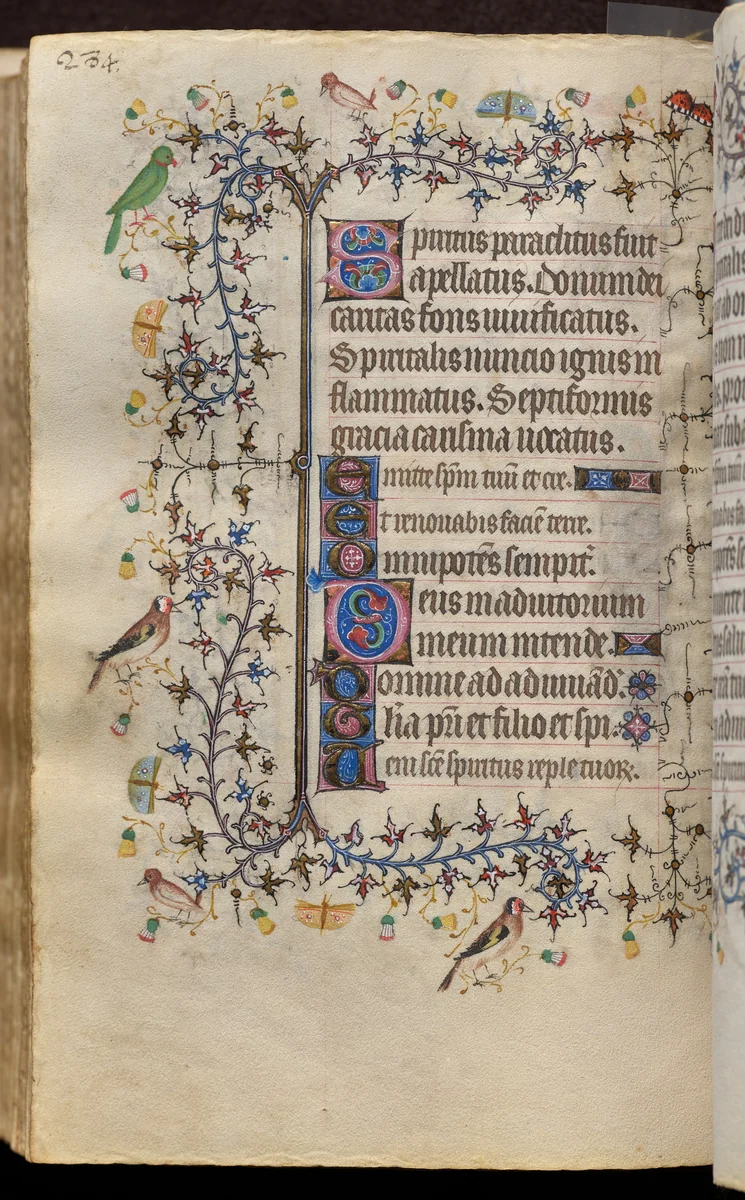 234.
Spiritus paraclitus fuit
apellatus. Donum dei
caritas fons uiuificatus.
Spiritalis unctio ignis in
flammatus. Septiformis
gracia carisma uocatus.
Emitte sp̅m tuu̅ et cre.
Et renouabis facie̅ terre.
Omnipote̅s sempit̅.
Deus in adiutorium
meum intende.
Domine ad adiuua̅d̅.
Gl̅ia p̅ri et filio et spi.
Ueni sc̅e spiritus reple tuoꝝ.